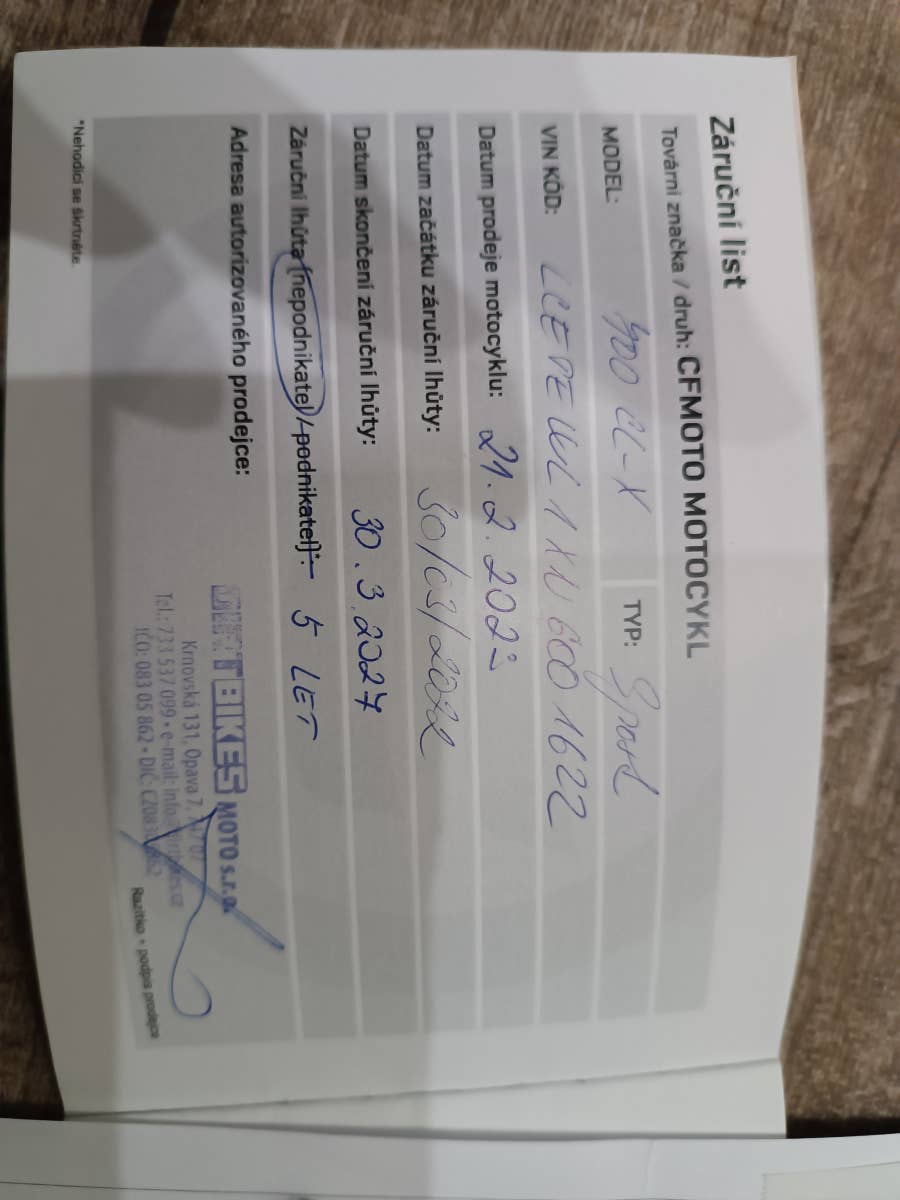 Záruční list
Tovární značka / druh: CFMOTO MOTOCYKL
MODEL: 700 CL-X TYP: Sport
VIN KÓD: LCEPEUML1XN6001622
Datum prodeje motocyklu: 21. 2. 2023
Datum začátku záruční lhůty: 30/03/2022
Datum skončení záruční lhůty: 30. 3. 2027
Záruční lhůta (nepodnikatel / podnikatel)*: 5 LET
Adresa autorizovaného prodejce:
MOTO s.r.o.
Krnovská 131, Opava 7, 747 07
Tel.: 733 537 099 • e-mail:
IČO: 083 05 862 • DIČ:
Razítko + podpis prodejce
*Nehodící se škrtněte.